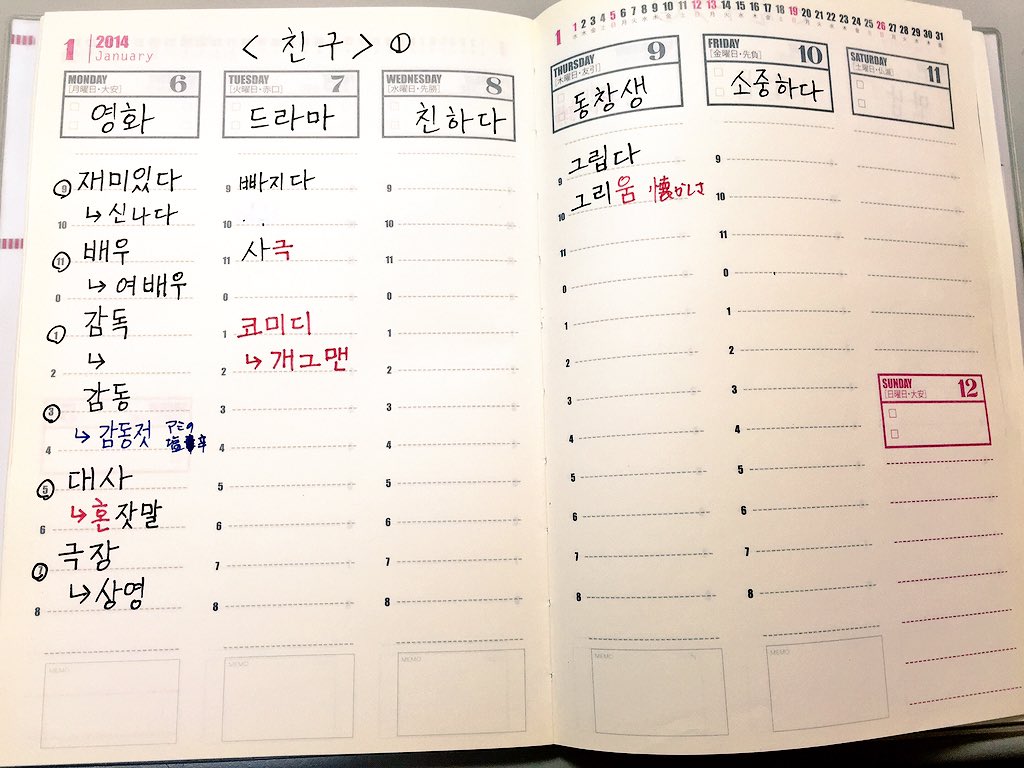 1 2014 January
<친구> ①
MONDAY 6
[月曜日・大安]
영화
⑨ 재미있다
10 ↳ 신나다
⑪ 배우
0 ↳ 여배우
① 감독
2 ↳
③ 감동
4 ↳ 감동젓 アミの塩辛
⑤ 대사
6 ↳ 혼잣말
⑦ 극장
8 ↳ 상영
MEMO
TUESDAY 7
[火曜日・赤口]
드라마
9 빠지다
10
11 사극
0
1 코미디
2 ↳ 개그맨
3
4
5
6
7
8
MEMO
WEDNESDAY 8
[水曜日・先勝]
친하다
9
10
11
0
1
2
3
4
5
6
7
8
MEMO
1 1 2 3 4 5 6 7 8 9 10 11 12 13 14 15 16 17 18 19 20 21 22 23 24 25 26 27 28 29 30 31
水 木 金 土 日 月 火 水 木 金 土 日 月 火 水 木 金 土 日 月 火 水 木 金 土 日 月 火 水 木 金
THURSDAY 9
[木曜日・友引]
동창생
그립다
9
그리움 懐かしさ
10
11
0
1
2
3
4
5
6
7
8
MEMO
FRIDAY 10
[金曜日・先負]
소중하다
9
10
11
0
1
2
3
4
5
6
7
8
MEMO
SATURDAY 11
[土曜日・仏滅]
SUNDAY 12
[日曜日・大安]